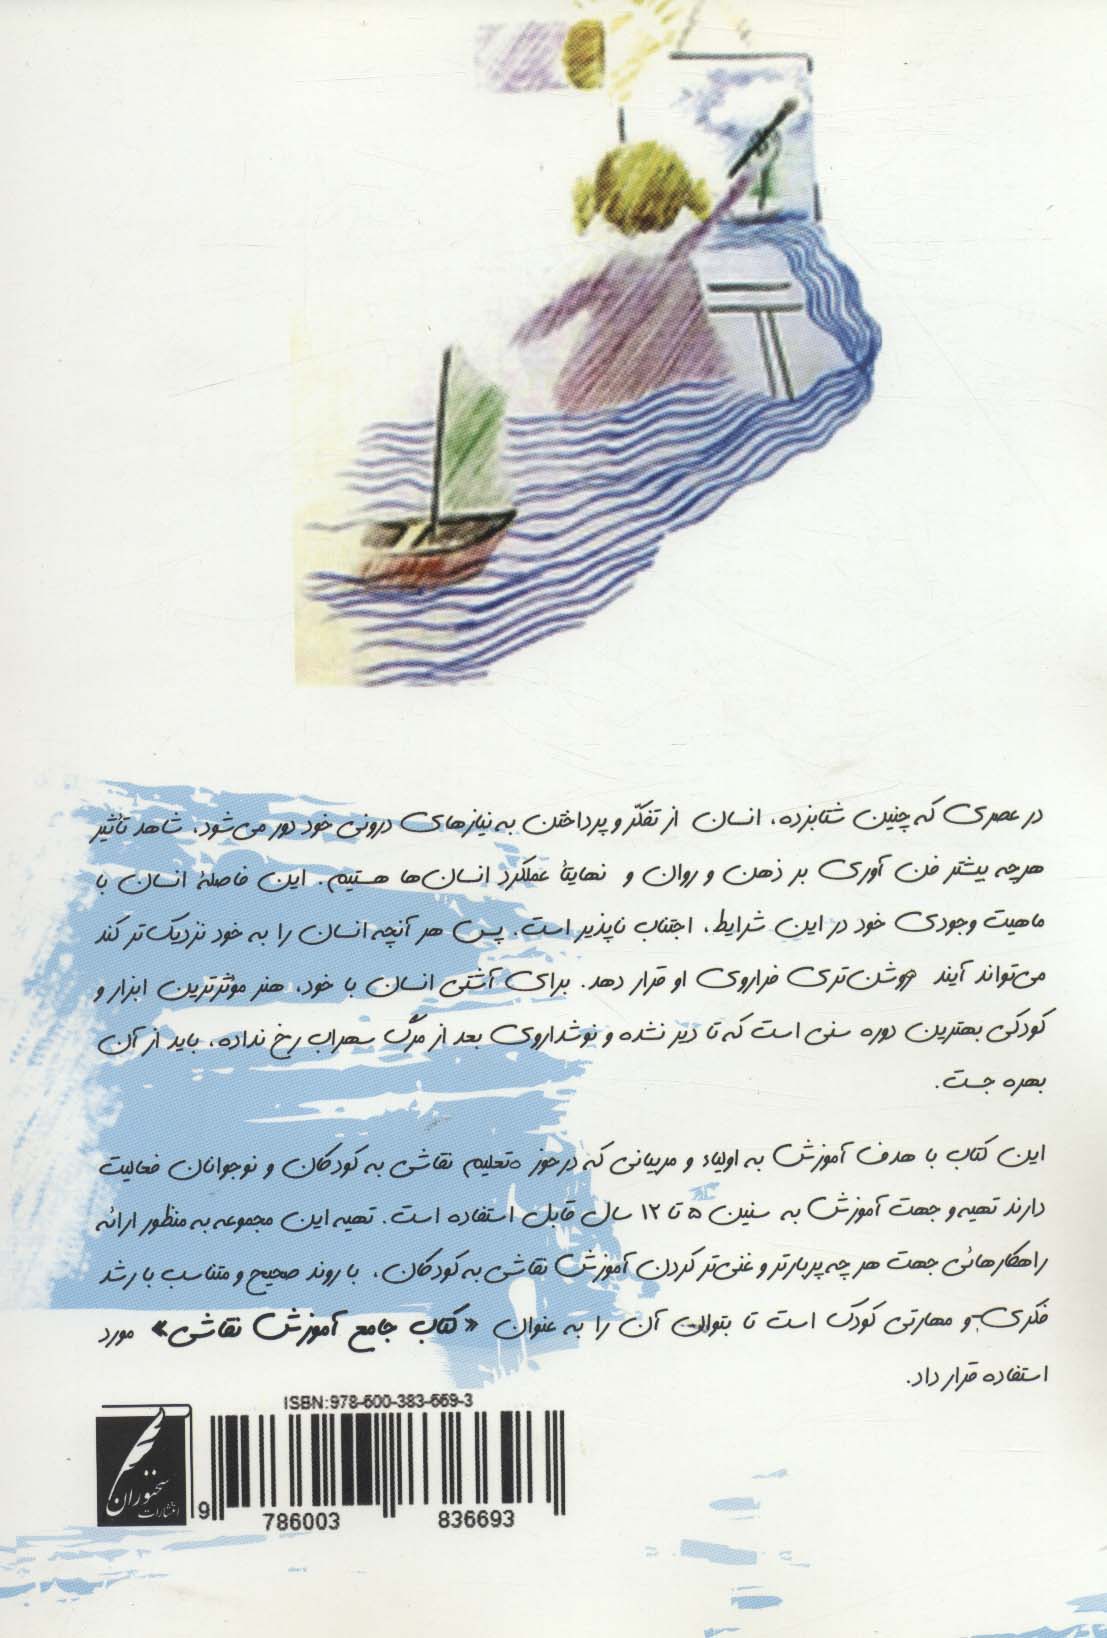 در عصری که چنین شتابزده، انسان از تفکّر و پرداختن به نیازهای درونی خود دور می‌شود، شاهد تأثیر
هرچه بیشتر فن آوری بر ذهن و روان و نهایتاً عملکرد انسان‌ها هستیم. این فاصلهٔ انسان با
ماهیت وجودی خود در این شرایط، اجتناب ناپذیر است. پس هر آنچه انسان را به خود نزدیک‌تر کند
می‌تواند آیند روشن‌تری فراروی او قرار دهد. برای آشتی انسان با خود، هنر مؤثرترین ابزار و
کودکی بهترین دوره سنی است که تا دیر نشده و نوشداروی بعد از مرگ سهراب رخ نداده، باید از آن
بهره جست.
این کتاب با هدف آموزش به اولیاء و مربیانی که در حوز ه‌تعلیم نقاشی به کودکان و نوجوانان فعالیت
دارند تهیه و جهت آموزش به سنین ۵ تا ۱۲ سال قابل استفاده است. تهیه این مجموعه به منظور ارائه
راهکارهائی جهت هر چه پربارتر و غنی‌تر کردن آموزش نقاشی به کودکان، با روند صحیح و متناسب با رشد
فکری و مهارتی کودک است تا بتوان آن را به عنوان «کتاب جامع آموزش نقاشی» مورد
استفاده قرار داد.
ISBN:978-600-383-669-3
9 786003 836693
انتشارات سخنوران